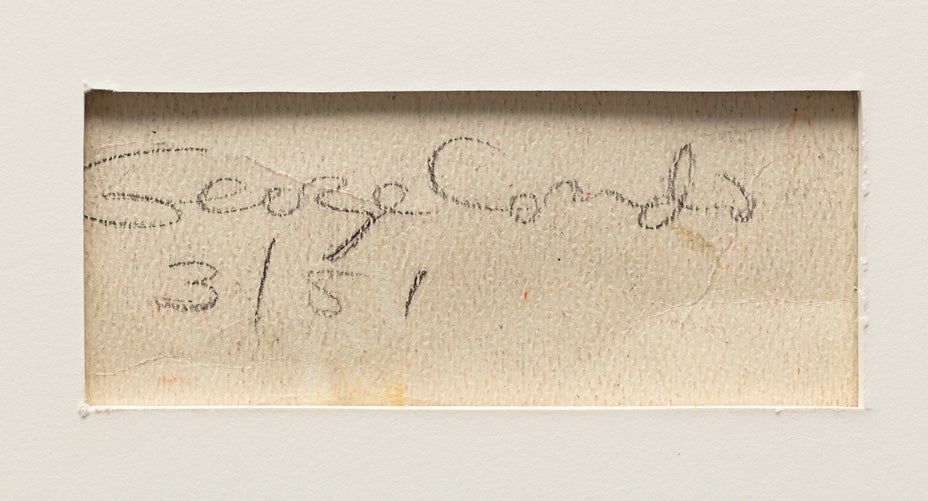 George Condo
3/51